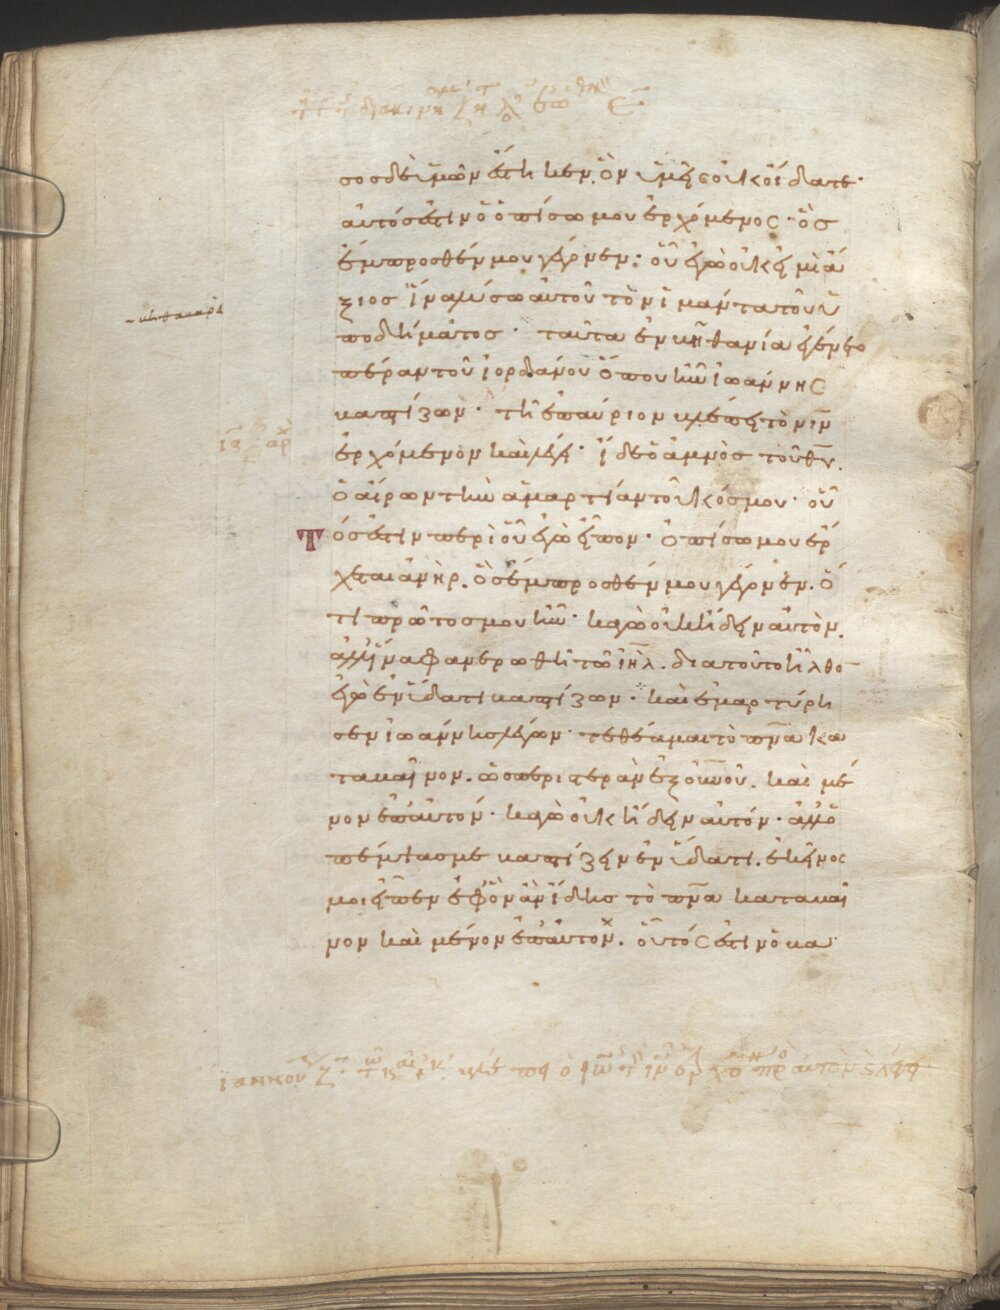 σος δὲ ὑμῶν ἕστηκεν. ὃν ὑμεῖς οὐκ οἴδατε·
αὐτός ἐστιν ὁ ὀπίσω μου ἐρχόμενος· ὃς
ἔμπροσθέν μου γέγονεν· οὗ ἐγὼ οὐκ εἰμὶ ἄ
ξιος ἵνα λύσω αὐτοῦ τὸν ἱμάντα τοῦ ὑ
ποδήματος· ταῦτα ἐν βηθανία ἐγένετο
πέραν τοῦ ἰορδάνου ὅπου ἦν ἰωάννης
βαπτίζων· τῆ ἐπαύριον βλέπει τὸν ιν
ἐρχόμενον καὶ λέγει· ἴδε ὁ ἀμνὸς τοῦ θυ.
ὁ αἴρων τὴν ἁμαρτίαν τοῦ κόσμου· οὗ
τός ἐστιν περὶ οὗ ἐγὼ εἶπον· ὀπίσω μου ἔρ
χεται ἀνὴρ. ὃς ἔμπροσθέν μου γέγονεν. ὅ
τι πρῶτός μου ἦν· κἀγὼ οὐκ ἤδειν αὐτὸν.
ἀλλ' ἵνα φανερωθῆ τῶ ιηλ. διὰ τοῦτο ἦλθον
ἐγὼ ἐν ὕδατι βαπτίζων· καὶ ἐμαρτύρη
σεν ἰωάννης λέγων· τεθέαμαι τὸ πνα κα
ταβαῖνον. ὡς περιστερὰν ἐξ οὐνοῦ. καὶ μέ
νον ἐπ' αὐτόν· κἀγὼ οὐκ ἤδειν αὐτόν· ἀλλ' ὁ
πέμψας με βαπτίζειν ἐν ὕδατι. ἐκεῖνος
μοι εἶπεν ἐφ' ὃν ἂν ἴδης τὸ πνα καταβαῖ
νον καὶ μένον ἐπ' αὐτον. οὗτός ἐστιν ὁ βα